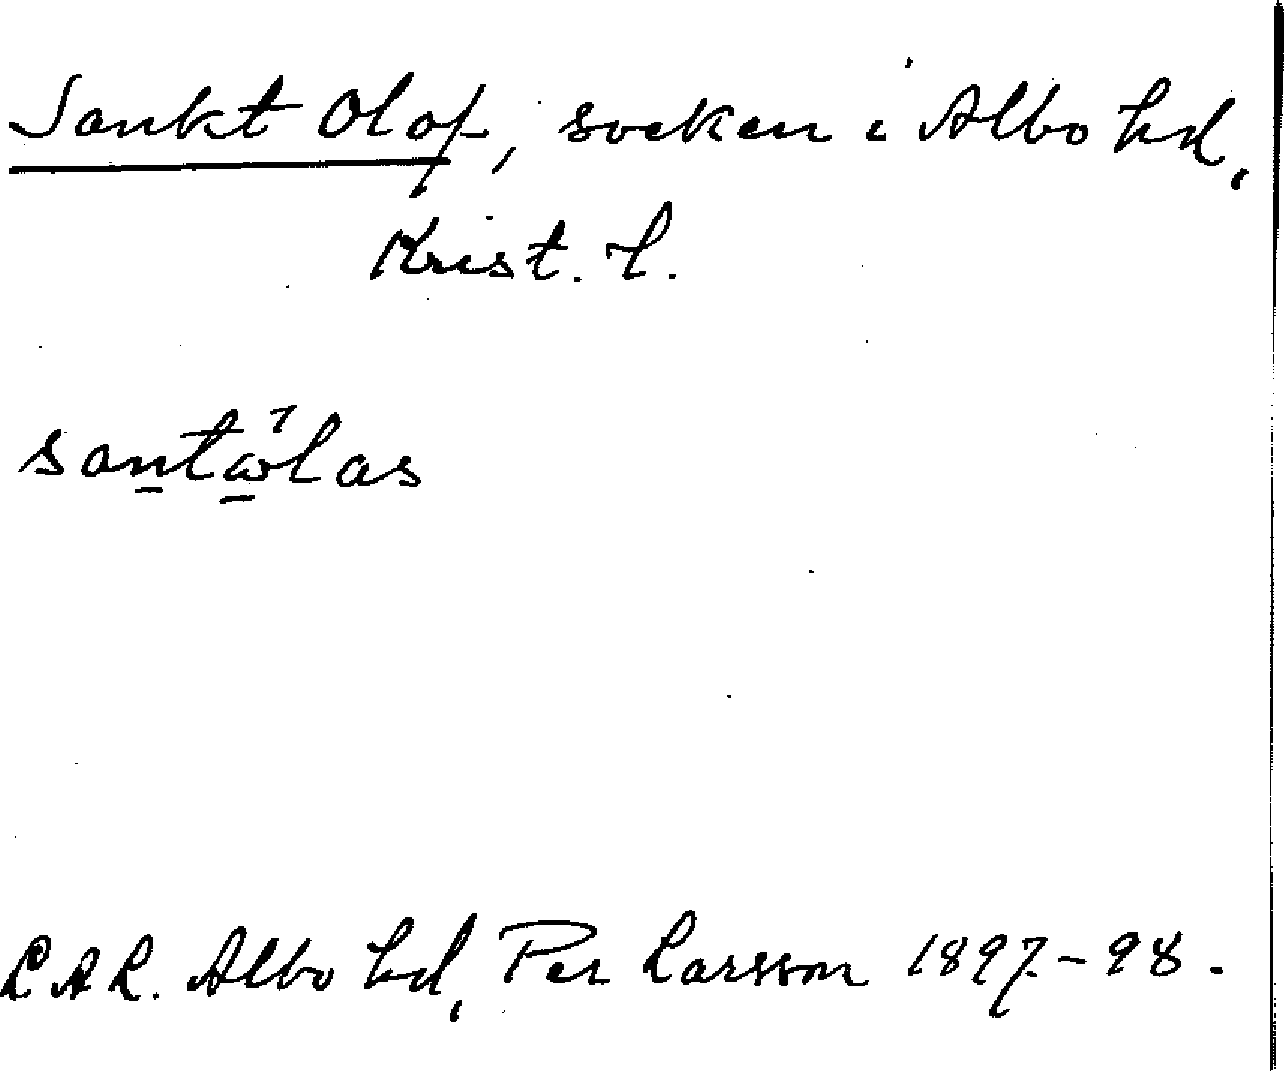 Sankt Olof, socken i Albo hd,
Krist. l.
santω̄̀las
L A L. Albo hd, Per Larsson 1897-98.